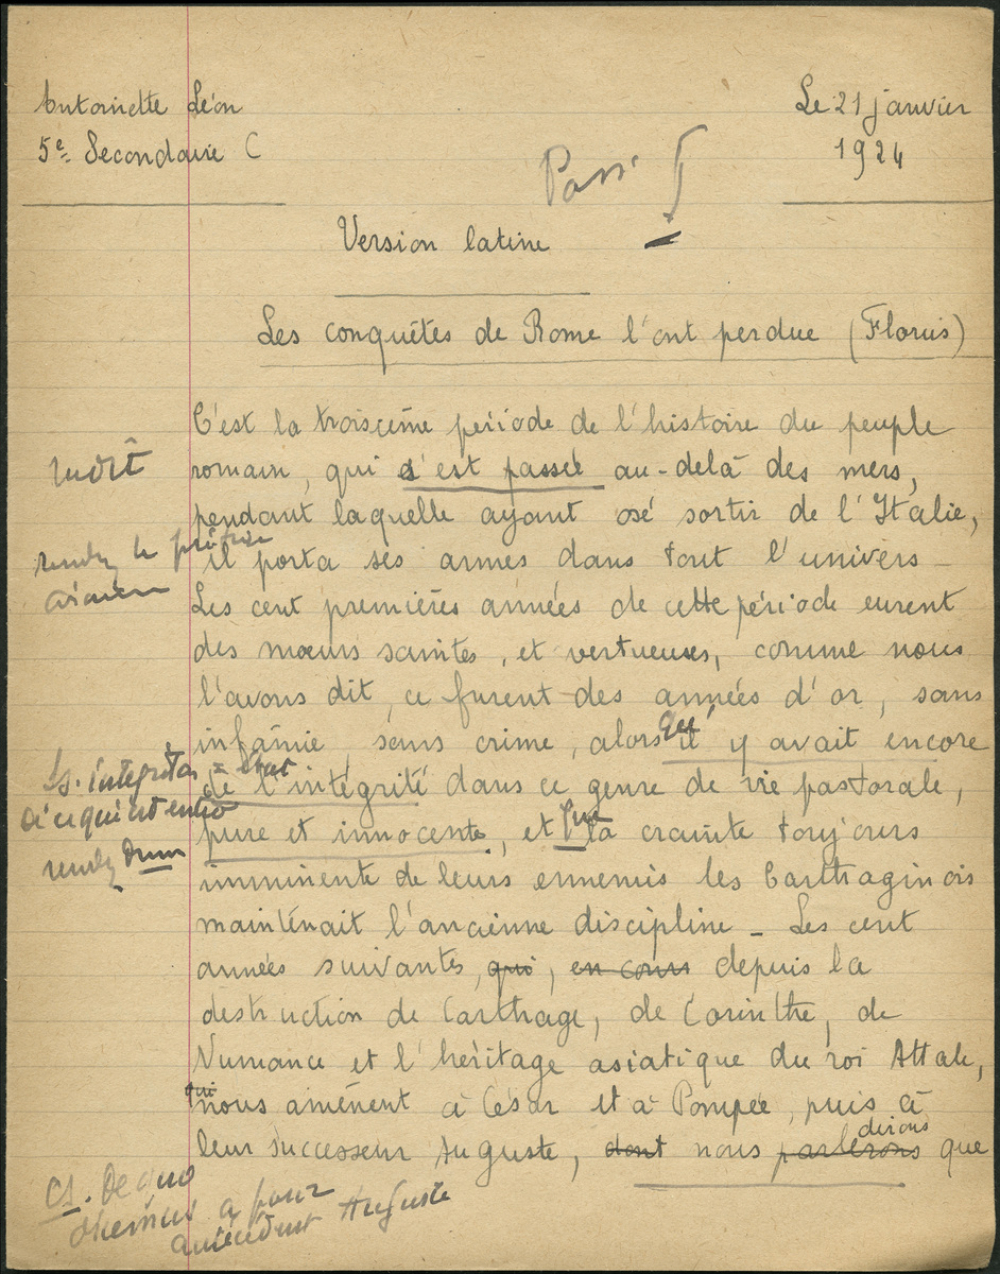 Antoinette Léon
Le 21 janvier
5e. Secondaire C
1924
Version latine
Les conquêtes de Rome l'ont perdue (Florus)
C'est la troisième période de l'histoire du peuple
romain, qui s'est passée au-delà des mers,
pendant laquelle ayant osé sortir de l'Italie,
rendez le
il porta ses armes dans tout l'univers_
Les cent premières années de cette période eurent
des mœurs saintes, et vertueuses, comme nous
l'avons dit, ce furent des années d'or, sans
infâmie, sans crime, alors qu'il y avait encore
cs. integritas = état
de l'intégrité dans ce genre de vie pastorale,
de ce qui est entier
pure et innocente, et que la crainte toujours
rendez dum
imminente de leurs ennemis les Carthaginois
maintenait l'ancienne discipline_ Les cent
années suivantes, qui, en cours depuis la
destruction de Carthage, de Corinthe, de
Numance et l'héritage asiatique du roi Attale,
qui nous amènent à César et à Pompée, puis à
leur successeur Auguste, dont nous parlerons dirons que
cs. De quo
dicemus a pour
antécédent Auguste